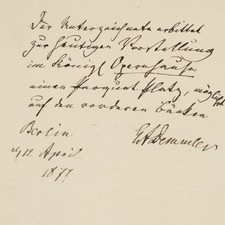 Der Unterzeichnete erbittet
zur heutigen Vorstellung
im Königl Opernhause
einen Parquet Platz, möglichst
auf den vorderen Bänken
Berlin
d 12. April
1877